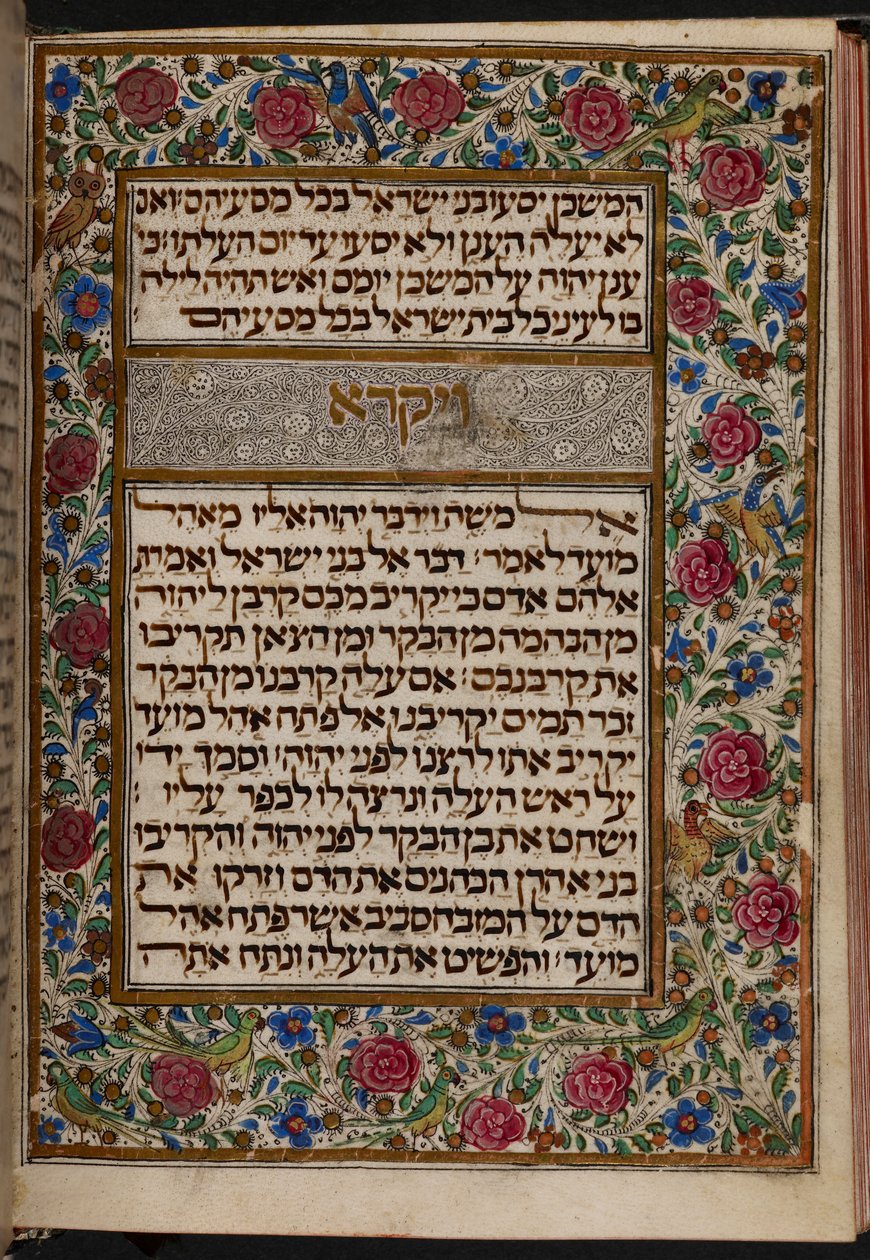 המשכן יסעו בני ישראל בכל מסעיהם׃ ואם
לא יעלה הענן ולא יסעו עד יום העלתו׃ כי
ענן יהוה על המשכן יומם ואש תהיה לילה
בו לעיני כל בית ישראל בכל מסעיהם׃
ויקרא
אל משה וידבר יהוה אליו מאהל
מועד לאמר׃ דבר אל בני ישראל ואמרת
אלהם אדם כי יקריב מכם קרבן ליהוה
מן הבהמה מן הבקר ומן הצאן תקריבו
את קרבנכם׃ אם עלה קרבנו מן הבקר
זכר תמים יקריבנו אל פתח אהל מועד
יקריב אתו לרצנו לפני יהוה׃ וסמך ידו
על ראש העלה ונרצה לו לכפר עליו׃
ושחט את בן הבקר לפני יהוה והקריבו
בני אהרן הכהנים את הדם וזרקו את
הדם על המזבח סביב אשר פתח אהל
מועד׃ והפשיט את העלה ונתח אתה